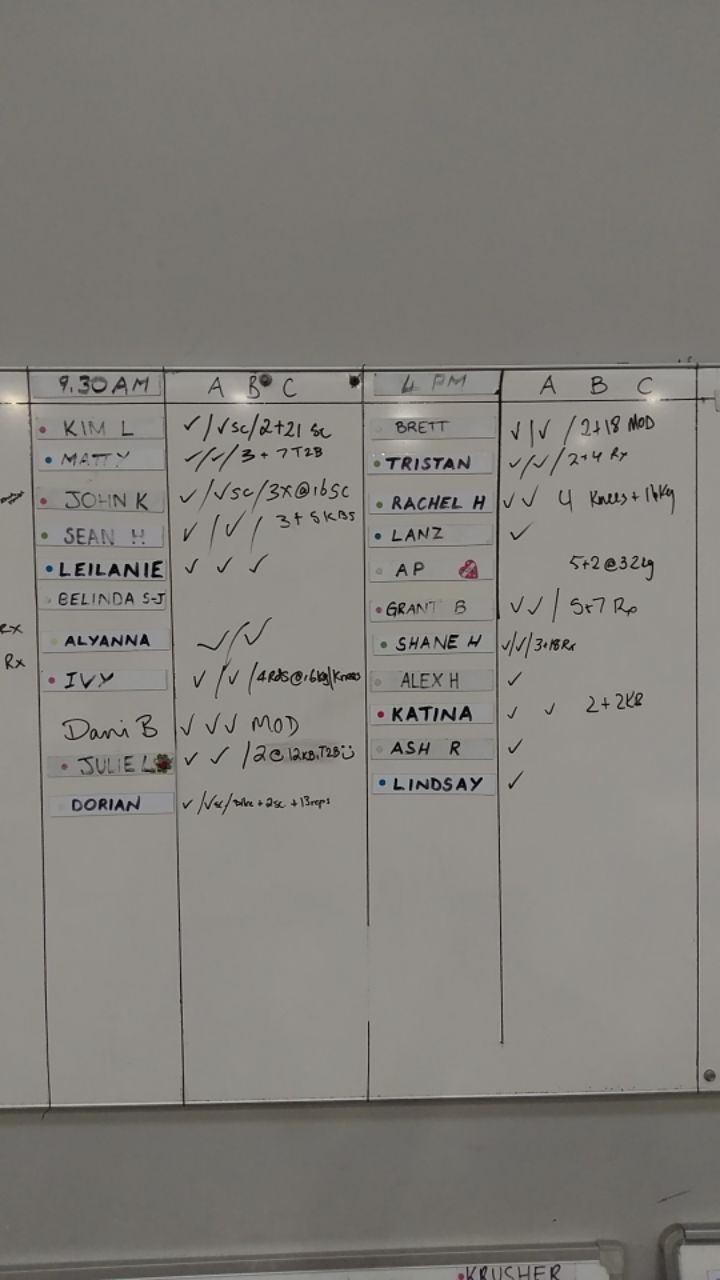 9.30AM A B C
KIM L ✓/✓sc/2+21 sc
MATTY ✓/✓/3+7T2B
JOHN K ✓/✓sc/3x@16sc
SEAN H ✓/✓/ 3+5KBS
LEILANIE ✓ ✓ ✓
BELINDA S-J
ALYANNA ✓/✓
IVY ✓/✓/4Rds@16kg/Knees
Dani B ✓ ✓ ✓ MOD
JULIE L ✓ ✓ /2@12KB,T2B
DORIAN ✓/✓sc/ + 2sc + 13reps
Rx
Rx
4 PM A B C
BRETT ✓/✓ /2+18 MOD
TRISTAN ✓/✓/2+4 Rx
RACHEL H ✓ ✓ 4 Knees+16kg
LANZ ✓
AP 5+2@32kg
GRANT B ✓ ✓ / 5+7 Rx
SHANE H ✓/✓/3+18Rx
ALEX H ✓
KATINA ✓ ✓ 2+2KB
ASH R ✓
LINDSAY ✓
KRUSHER